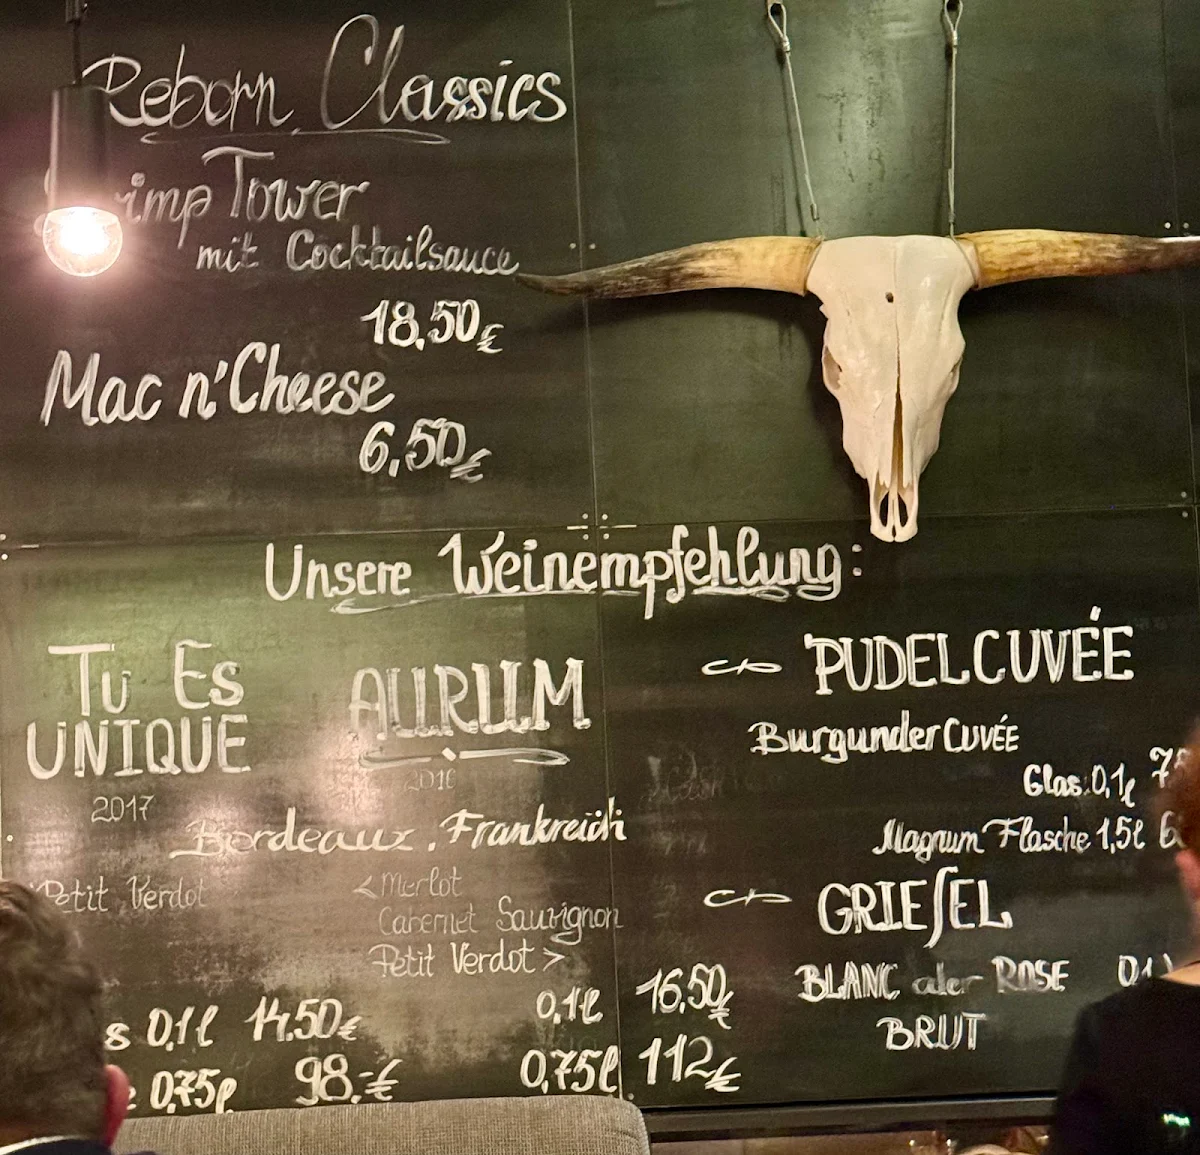 Reborn Classics
Tower
mit Cocktailsauce
18,50€
Mac n'Cheese
6,50€
Unsere Weinempfehlung:
Tu Es
UNIQUE
2017
AURUM
2016
Bordeaux, Frankreich
Petit Verdot
<Merlot
Cabernet Sauvignon
Petit Verdot>
0,1l 14.50€
0,75l 98.-€
0,1l 16,50€
0,75l 112€
PUDELCUVÉE
Burgunder CUVÉE
Glas 0,1l
Magnum Flasche 1,5l
GRIESEL
BLANC oder ROSE
BRUT